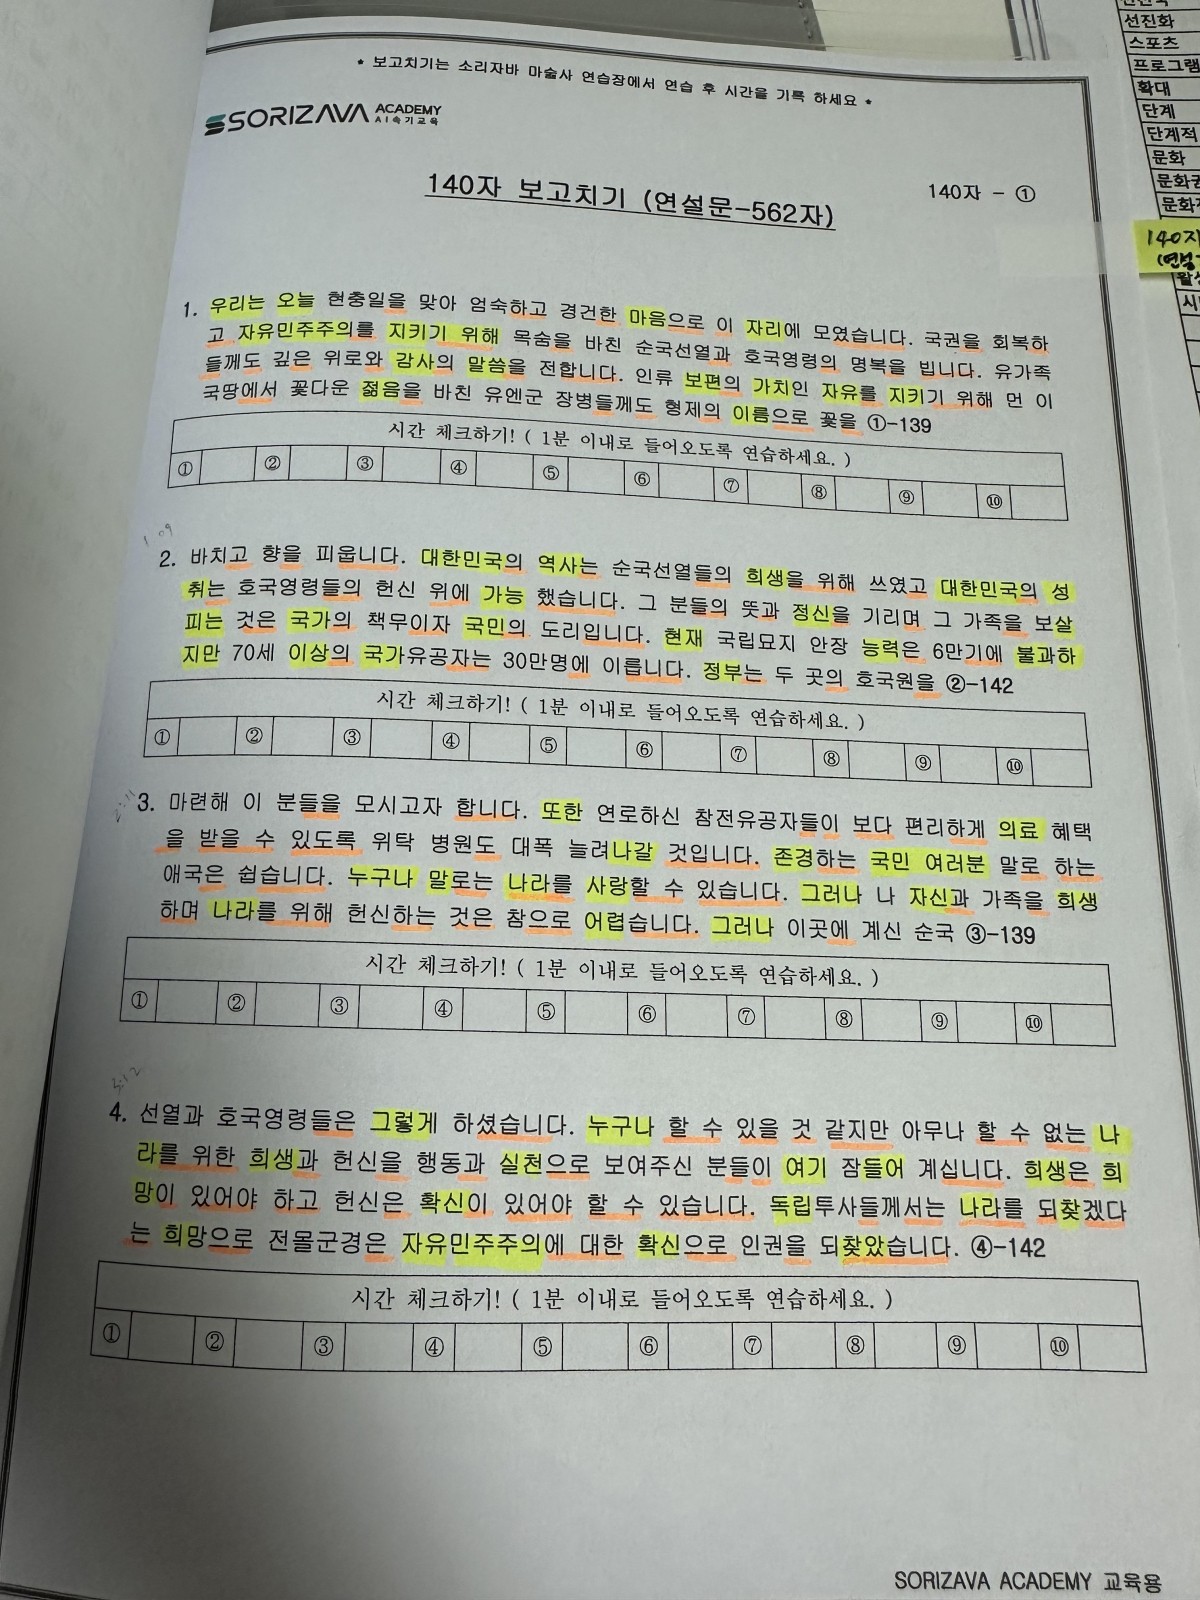 * 보고치기는 소리자바 마술사 연습장에서 연습 후 시간을 기록 하세요 *
SORIZAVA ACADEMY
AI속기교육
140자 보고치기 (연설문-562자)
140자 - ①
1. 우리는 오늘 현충일을 맞아 엄숙하고 경건한 마음으로 이 자리에 모였습니다. 국권을 회복하
고 자유민주주의를 지키기 위해 목숨을 바친 순국선열과 호국영령의 명복을 빕니다. 유가족
들께도 깊은 위로와 감사의 말씀을 전합니다. 인류 보편의 가치인 자유를 지키기 위해 먼 이
국땅에서 꽃다운 젊음을 바친 유엔군 장병들께도 형제의 이름으로 꽃을 ①-139
시간 체크하기! ( 1분 이내로 들어오도록 연습하세요. )
① ② ③ ④ ⑤ ⑥ ⑦ ⑧ ⑨ ⑩
1 09
2. 바치고 향을 피웁니다. 대한민국의 역사는 순국선열들의 희생을 위해 쓰였고 대한민국의 성
취는 호국영령들의 헌신 위에 가능 했습니다. 그 분들의 뜻과 정신을 기리며 그 가족을 보살
피는 것은 국가의 책무이자 국민의 도리입니다. 현재 국립묘지 안장 능력은 6만기에 불과하
지만 70세 이상의 국가유공자는 30만명에 이릅니다. 정부는 두 곳의 호국원을 ②-142
시간 체크하기! ( 1분 이내로 들어오도록 연습하세요. )
① ② ③ ④ ⑤ ⑥ ⑦ ⑧ ⑨ ⑩
3. 마련해 이 분들을 모시고자 합니다. 또한 연로하신 참전유공자들이 보다 편리하게 의료 혜택
을 받을 수 있도록 위탁 병원도 대폭 늘려나갈 것입니다. 존경하는 국민 여러분 말로 하는
애국은 쉽습니다. 누구나 말로는 나라를 사랑할 수 있습니다. 그러나 나 자신과 가족을 희생
하며 나라를 위해 헌신하는 것은 참으로 어렵습니다. 그러나 이곳에 계신 순국 ③-139
시간 체크하기! ( 1분 이내로 들어오도록 연습하세요. )
① ② ③ ④ ⑤ ⑥ ⑦ ⑧ ⑨ ⑩
3:12
4. 선열과 호국영령들은 그렇게 하셨습니다. 누구나 할 수 있을 것 같지만 아무나 할 수 없는 나
라를 위한 희생과 헌신을 행동과 실천으로 보여주신 분들이 여기 잠들어 계십니다. 희생은 희
망이 있어야 하고 헌신은 확신이 있어야 할 수 있습니다. 독립투사들께서는 나라를 되찾겠다
는 희망으로 전몰군경은 자유민주주의에 대한 확신으로 인권을 되찾았습니다. ④-142
시간 체크하기! ( 1분 이내로 들어오도록 연습하세요. )
① ② ③ ④ ⑤ ⑥ ⑦ ⑧ ⑨ ⑩
SORIZAVA ACADEMY 교육용
선진화
스포츠
프로그램
확대
단계
단계적
문화
문화권
140자